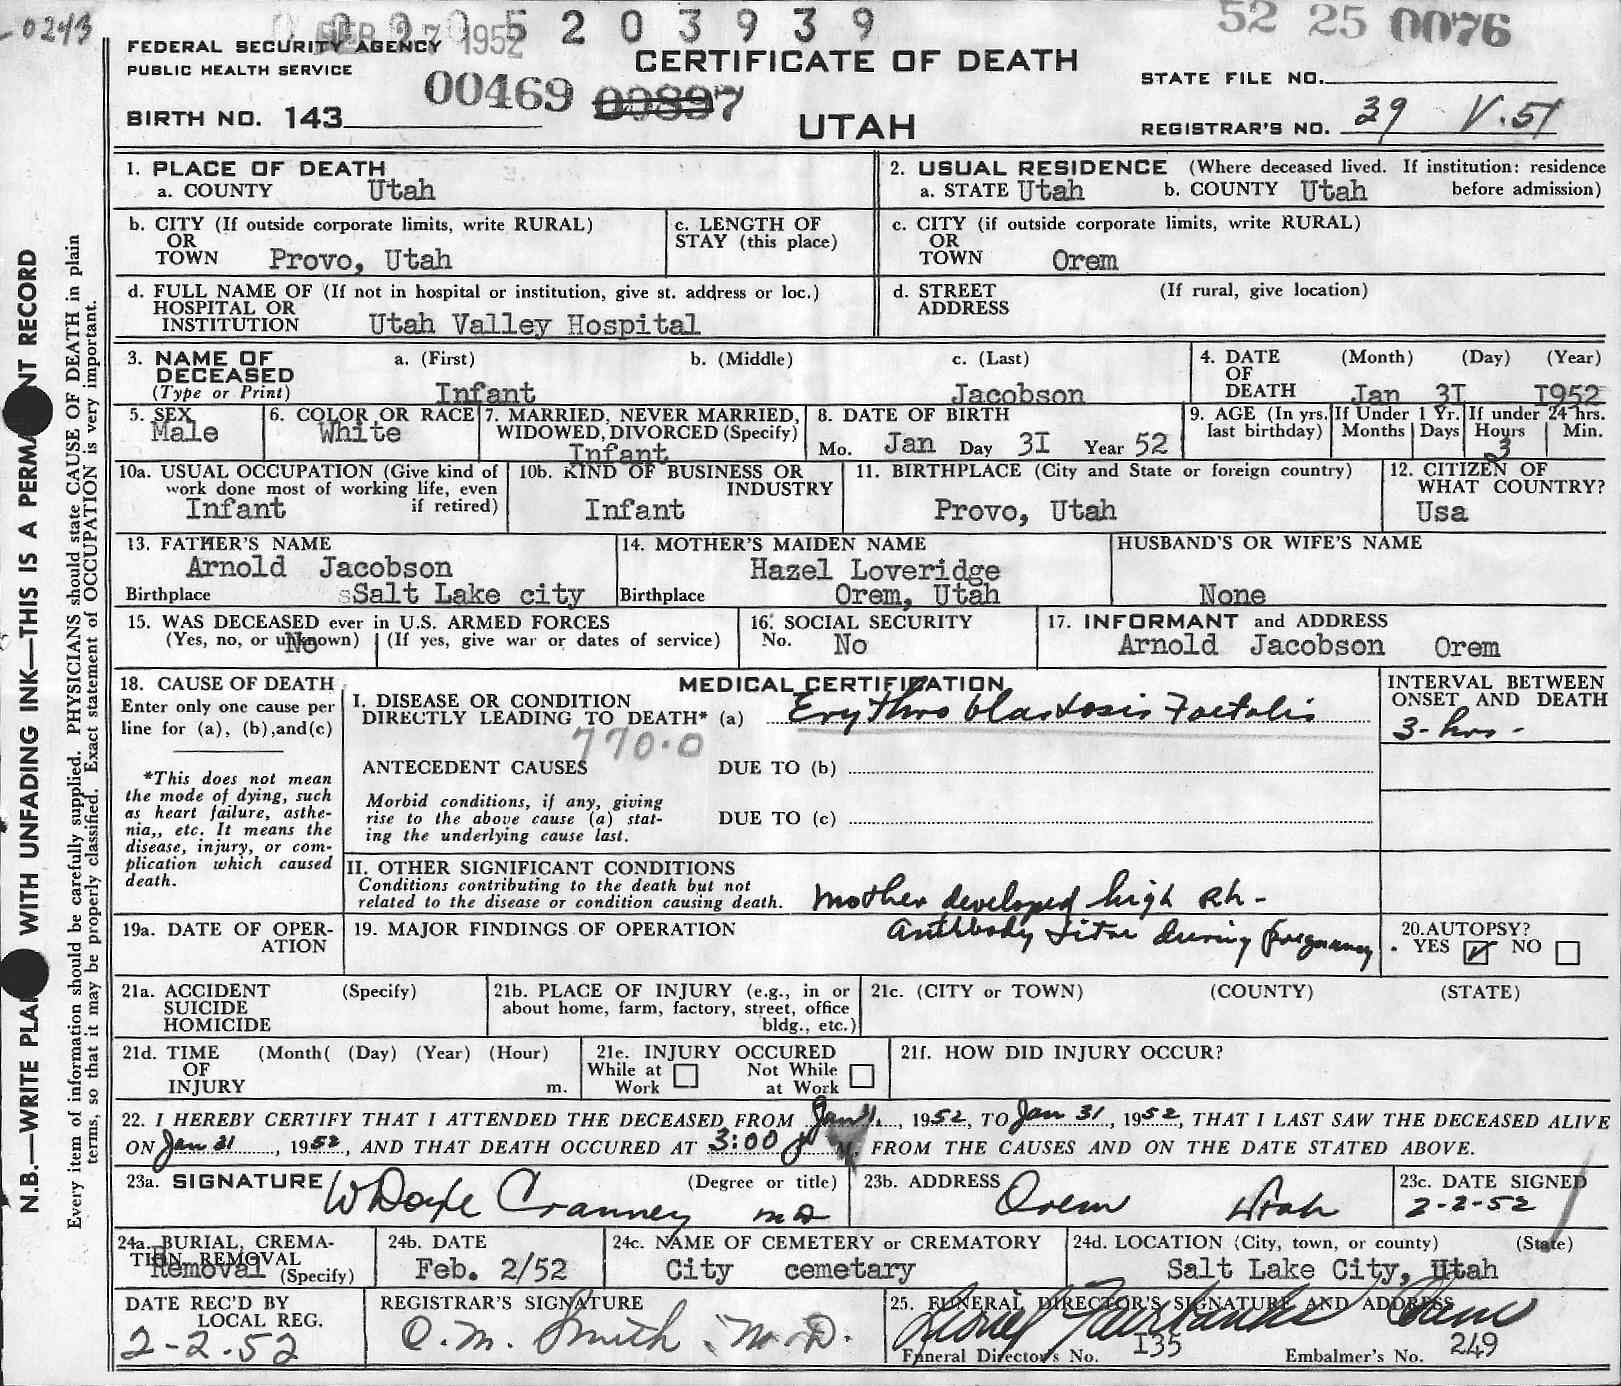 0243
SEP 27 1952
5 2 0 3 9 3 9
52 25 0076
FEDERAL SECURITY AGENCY
PUBLIC HEALTH SERVICE
CERTIFICATE OF DEATH
STATE FILE NO.
00469 00897
BIRTH NO. 143
UTAH
REGISTRAR'S NO. 39 V.51
N.B.—WRITE PLAI WITH UNFADING INK—THIS IS A PERMA NT RECORD
Every item of information should be carefully supplied. PHYSICIANS should state CAUSE OF DEATH in plain
terms, so that it may be properly classified. Exact statement of OCCUPATION is very important.
1. PLACE OF DEATH
a. COUNTY Utah
2. USUAL RESIDENCE (Where deceased lived. If institution: residence
a. STATE Utah b. COUNTY Utah before admission)
b. CITY (If outside corporate limits, write RURAL)
OR
TOWN Provo, Utah
c. LENGTH OF
STAY (this place)
c. CITY (if outside corporate limits, write RURAL)
OR
TOWN Orem
d. FULL NAME OF (If not in hospital or institution, give st. address or loc.)
HOSPITAL OR
INSTITUTION Utah Valley Hospital
d. STREET (If rural, give location)
ADDRESS
3. NAME OF a. (First) b. (Middle) c. (Last)
DECEASED
(Type or Print) Infant Jacobson
4. DATE (Month) (Day) (Year)
OF
DEATH Jan 3I I952
5. SEX
Male
6. COLOR OR RACE
White
7. MARRIED, NEVER MARRIED,
WIDOWED, DIVORCED (Specify)
Infant
8. DATE OF BIRTH
Mo. Jan Day 3I Year 52
9. AGE (In yrs.
last birthday)
If Under 1 Yr.
Months Days
If under 24 hrs.
Hours Min.
3
10a. USUAL OCCUPATION (Give kind of
work done most of working life, even
Infant if retired)
10b. KIND OF BUSINESS OR
INDUSTRY
Infant
11. BIRTHPLACE (City and State or foreign country)
Provo, Utah
12. CITIZEN OF
WHAT COUNTRY?
Usa
13. FATHER'S NAME
Arnold Jacobson
Birthplace sSalt Lake city
14. MOTHER'S MAIDEN NAME
Hazel Loveridge
Birthplace Orem, Utah
HUSBAND'S OR WIFE'S NAME
None
15. WAS DECEASED ever in U.S. ARMED FORCES
(Yes, no, or unknown) (If yes, give war or dates of service)
No
16. SOCIAL SECURITY
No. No
17. INFORMANT and ADDRESS
Arnold Jacobson Orem
18. CAUSE OF DEATH
Enter only one cause per
line for (a), (b),and(c)
*This does not mean
the mode of dying, such
as heart failure, asthe-
nia,, etc. It means the
disease, injury, or com-
plication which caused
death.
MEDICAL CERTIFICATION
I. DISEASE OR CONDITION
DIRECTLY LEADING TO DEATH* (a) Erythro blastosis Foetalis
770.0
ANTECEDENT CAUSES DUE TO (b)
Morbid conditions, if any, giving
rise to the above cause (a) stat-
ing the underlying cause last.
DUE TO (c)
INTERVAL BETWEEN
ONSET AND DEATH
3-hrs-
II. OTHER SIGNIFICANT CONDITIONS
Conditions contributing to the death but not
related to the disease or condition causing death.
Mother developed high Rh-
Antibody titer during pregnancy.
19a. DATE OF OPER-
ATION
19. MAJOR FINDINGS OF OPERATION
20.AUTOPSY?
YES NO
21a. ACCIDENT (Specify)
SUICIDE
HOMICIDE
21b. PLACE OF INJURY (e.g., in or
about home, farm, factory, street, office
bldg., etc.)
21c. (CITY or TOWN) (COUNTY) (STATE)
21d. TIME (Month( (Day) (Year) (Hour)
OF
INJURY m.
21e. INJURY OCCURED
While at Not While
Work at Work
21f. HOW DID INJURY OCCUR?
22. I HEREBY CERTIFY THAT I ATTENDED THE DECEASED FROM Jan 1, 1952, TO Jan 31, 1952, THAT I LAST SAW THE DECEASED ALIVE
ON Jan 31, 1952, AND THAT DEATH OCCURED AT 3:00 M. FROM THE CAUSES AND ON THE DATE STATED ABOVE.
23a. SIGNATURE (Degree or title)
W Doyle Cranney MD
23b. ADDRESS
Orem Utah
23c. DATE SIGNED
2-2-52
24a. BURIAL, CREMA-
TION, REMOVAL
Removal (Specify)
24b. DATE
Feb. 2/52
24c. NAME OF CEMETERY or CREMATORY
City cemetary
24d. LOCATION (City, town, or county) (State)
Salt Lake City, Utah
DATE REC'D BY
LOCAL REG.
2-2-52
REGISTRAR'S SIGNATURE
O.M. Smith M.D.
25. FUNERAL DIRECTOR'S SIGNATURE AND ADDRESS
Lionel Fairbanks Orem
Funeral Director's No. I35 Embalmer's No. 249